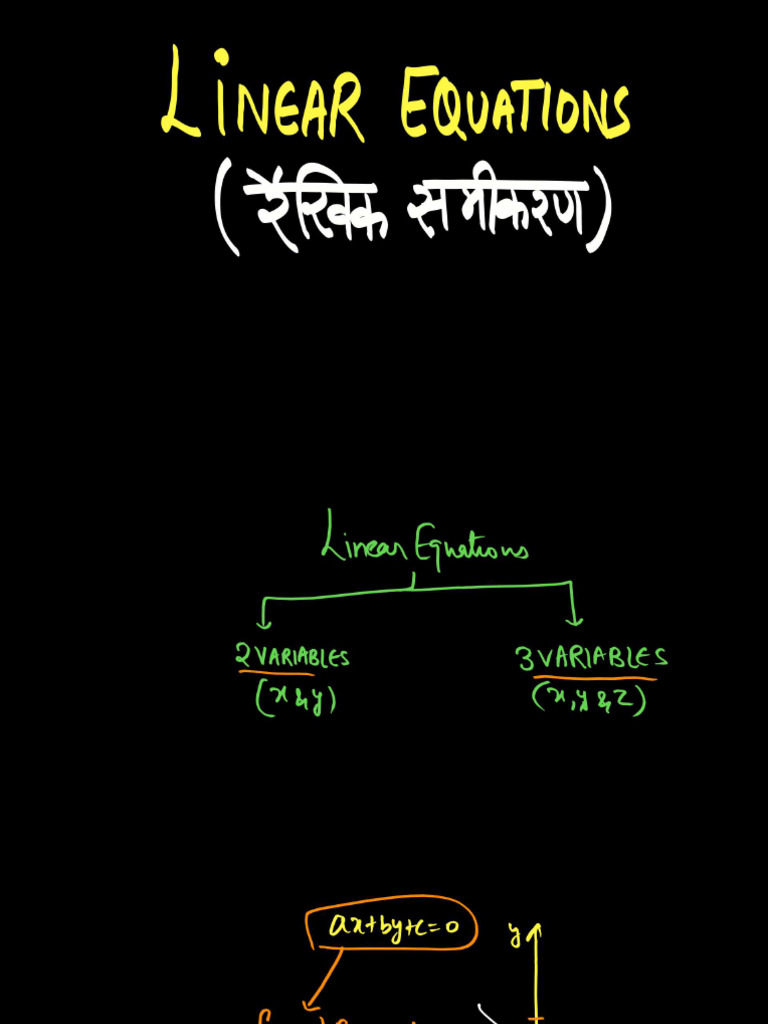 LINEAR EQUATIONS
(रैखिक समीकरण)
Linear Equations
2 VARIABLES
(x & y)
3 VARIABLES
(x, y & z)
ax+by+c=0
y